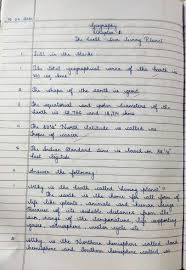 Geography
Chapter 1
The Earth Our Living Planet
1 Fill in the blanks
1. The total geographical area of the Earth is
510 sq kms.
2. The shape of the Earth is geoid.
3. The equatorial and polar diameters of the
Earth is 12,756 and 12,714 kms
4. The 23½° North latitude is called as
Tropic of cancer.
5. The Indian Standard time is based on 82½°
East longitude
Answer the following:
1. Why is the Earth called 'living planet'?
The Earth is the home for all form of
life like plants, animals and human beings.
Because of its suitable distance from the
sun, range of the temperature, life supporting
gases, atmosphere, water cycle etc
2. Why is the Northern hemisphere called land
hemisphere and Southern hemisphere called as